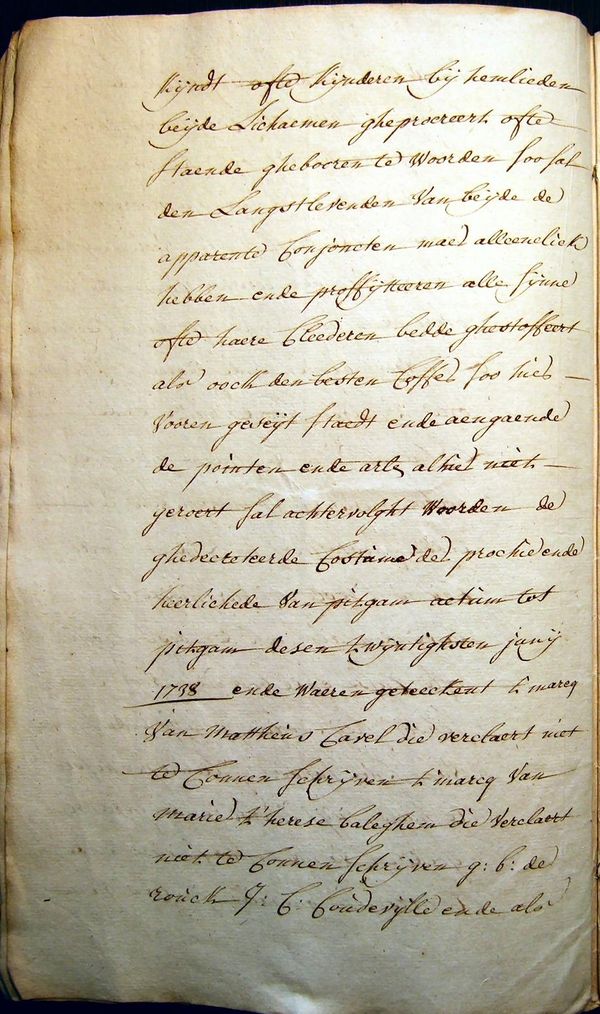 kijndt ofte kijnderen bij hemlieden
beijde Lichaemen gheprocreert ofte
staende ghebooren te Woorden soo sal
den Langstlevenden Van beijde de
apparente Conjoncten maer alleenelick
hebben ende proffijtteeren alle sijnne
ofte haere Cleederen bedde ghestoffeert
als oock den besten Coffer soo hier
Vooren geseijt staedt ende aengaende
de pointen ende arle, alhier niet
geroert sal achtervolght Woorden de
ghedecreteerde Costume der prochie ende
heerlichede Van pitgam actum tot
pitgam desen twijntighsten junij
1738 ende Waeren geteeckent t'marcq
Van Mattheus Cavel die verclaert niet
te Connen schrijven t'marcq Van
Marie t'herese baleghem die Verclaert
niet te Connen schrijven g: b: de
rouck J: C: Coudevylle ende als